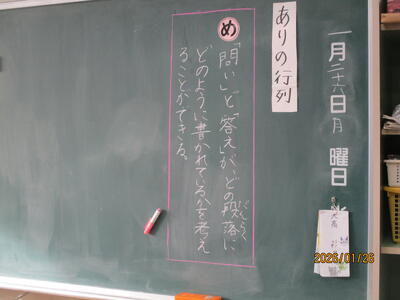 一月二十六日 月 曜日
ありの行列
め
「問い」と「答え」が、どの段落に
だんらく
どのように書かれているかを考え
ることができる。
2026/01/26